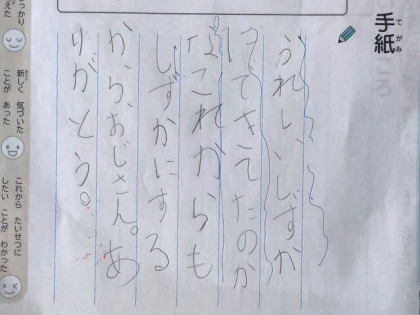 手紙
てがみ
うれしい、しずか
たのか
これからも
しずかにする
から、おじさん。あ
りがとう。
っかり
えた
新しく 気づいた
ことが あった
これから たいせつに
したい ことが わかった